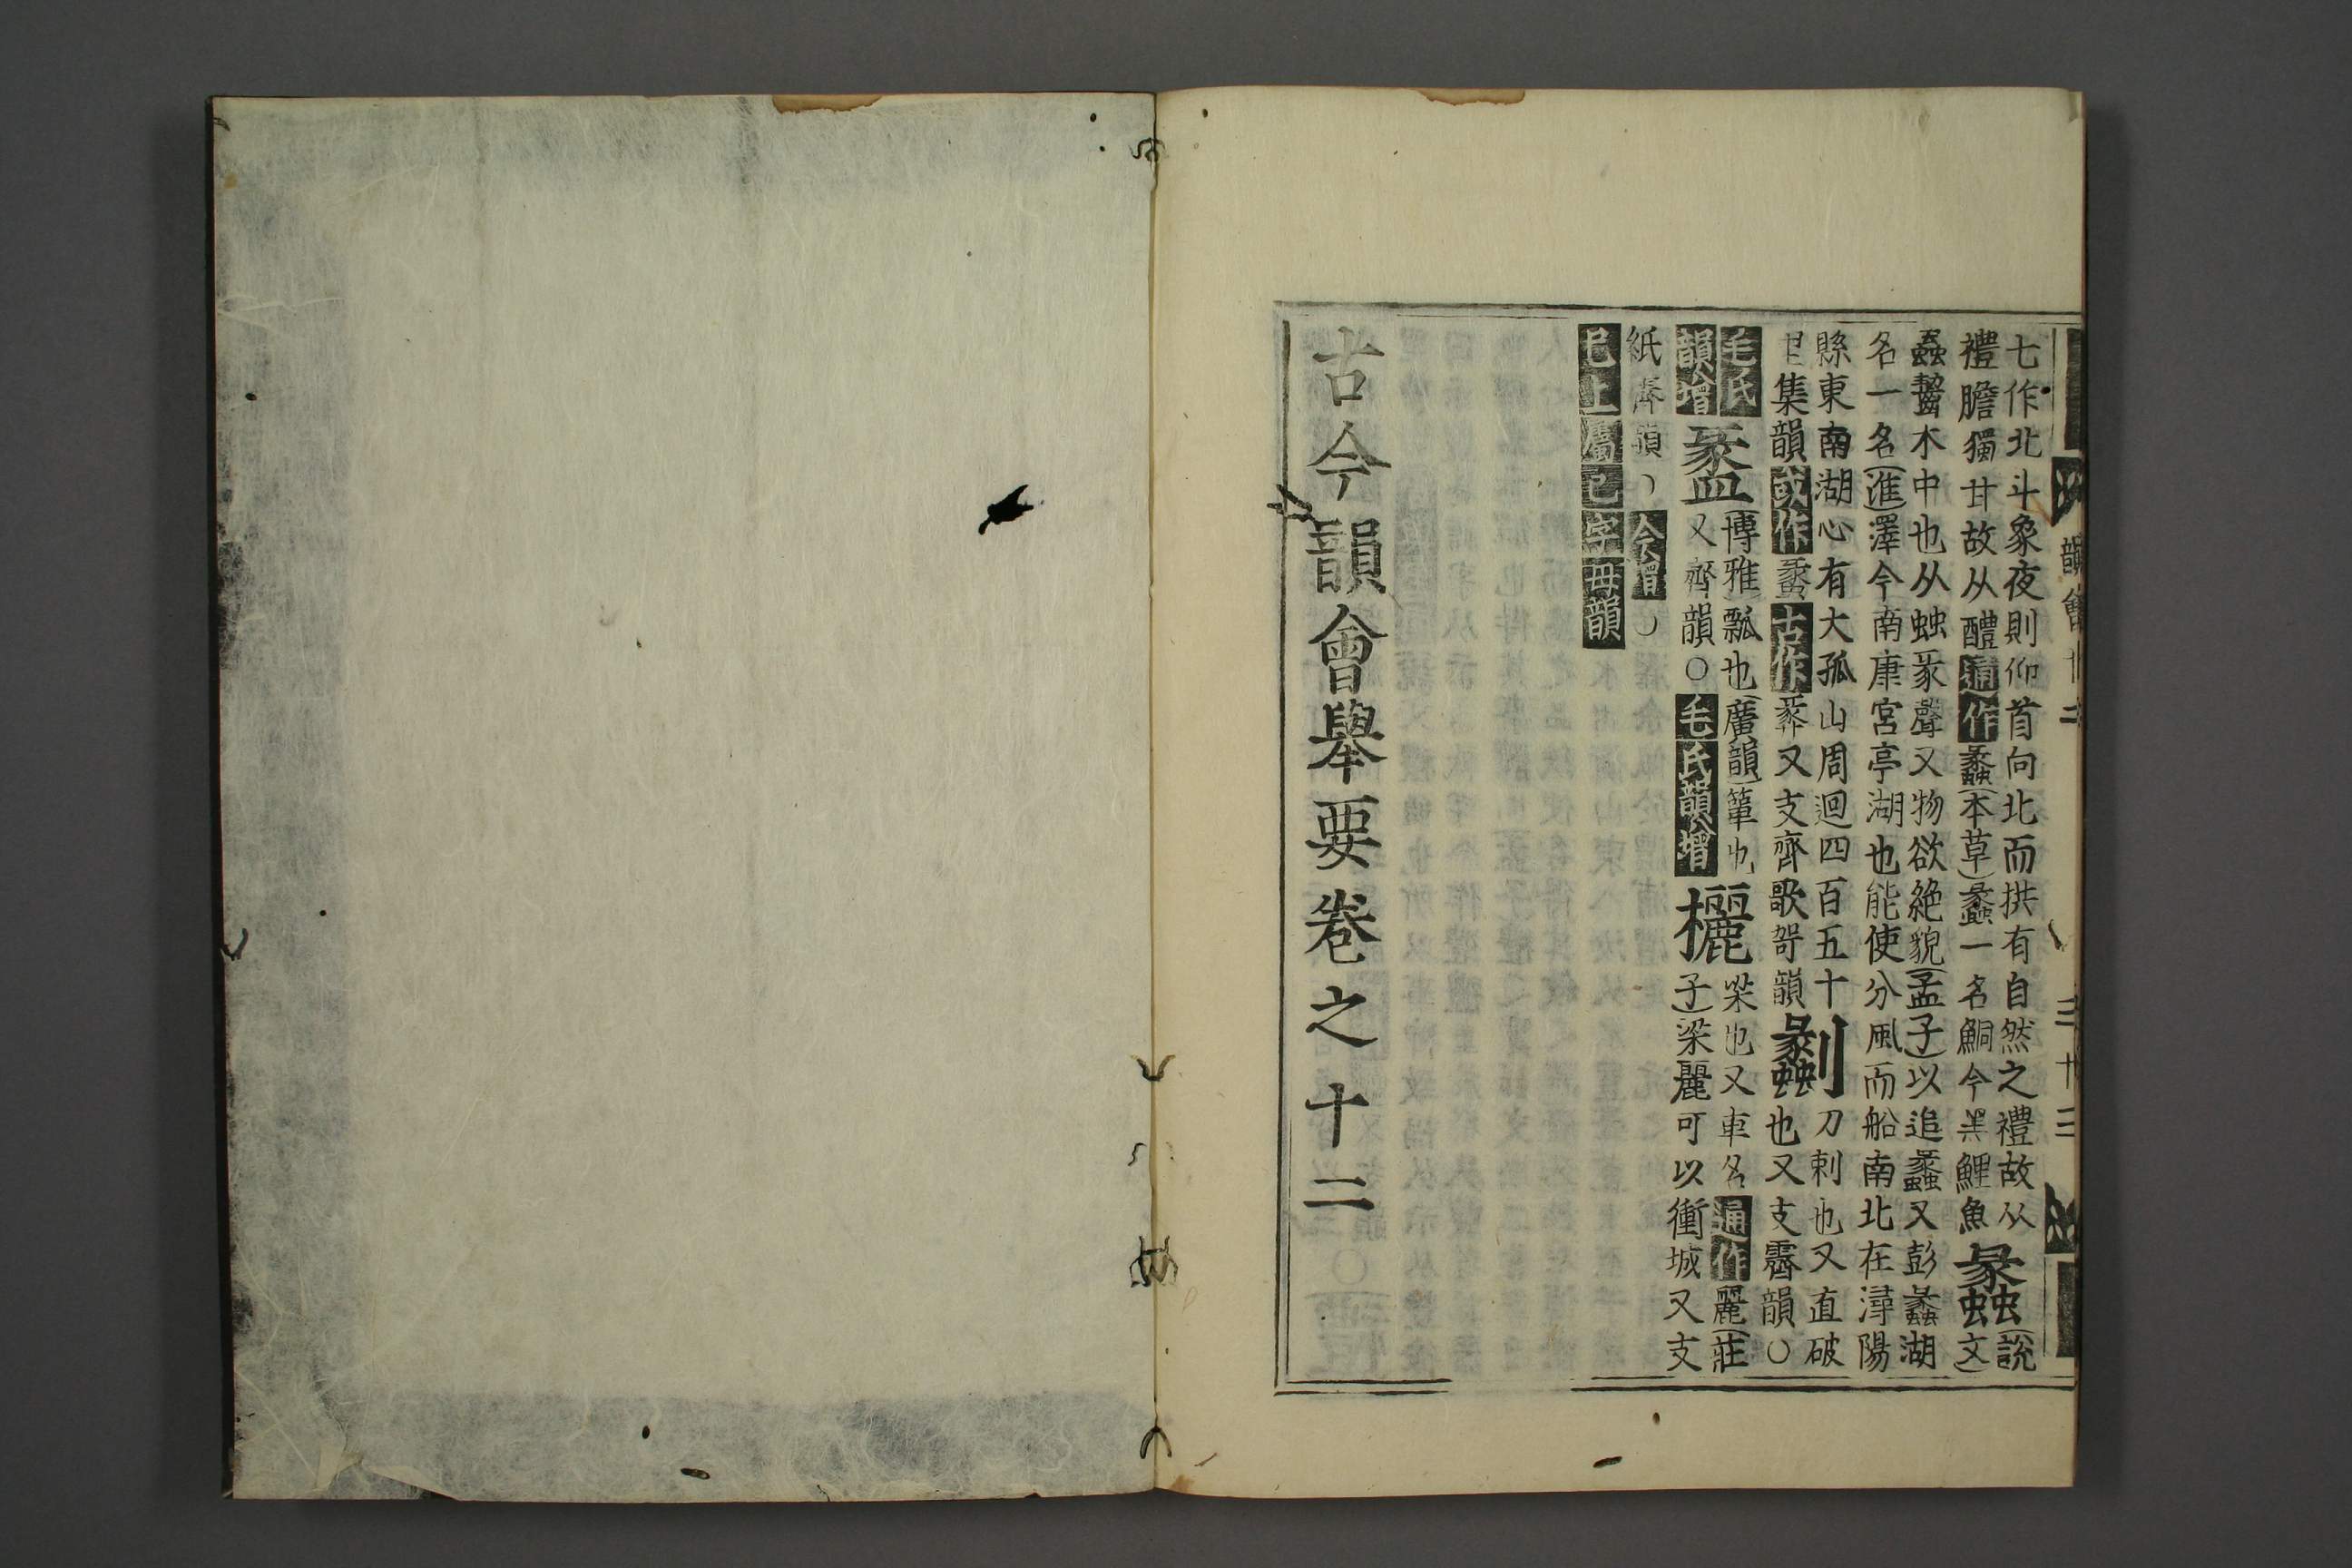 七作北斗象夜則仰首向北而拱有自然之禮故从
禮膽獨甘故从醴通作蠡(本草)蠡一名鮦今黑鯉魚
蠡(說文)
蟲齧木中也从䖵彖聲又物欲絶貌(孟子)以追蠡又彭蠡湖
名一名(進)澤今南康宮亭湖也能使分風而船南北在潯陽
縣東南湖心有大孤山周迴四百五十
里集韻或作𧓽古作𧒻又支齊歌哿韻
劙刀刺也又直破
也又支霽韻○
毛氏
韻增
盠(博雅)瓢也(廣韻)簞也
又齊韻○毛氏韻增
欐梁也又車名通作麗(莊
子)梁麗可以衝城又支
紙霽韻○今增○
已上屬己字母韻
古今韻會舉要卷之十二
韻會十二
三十三